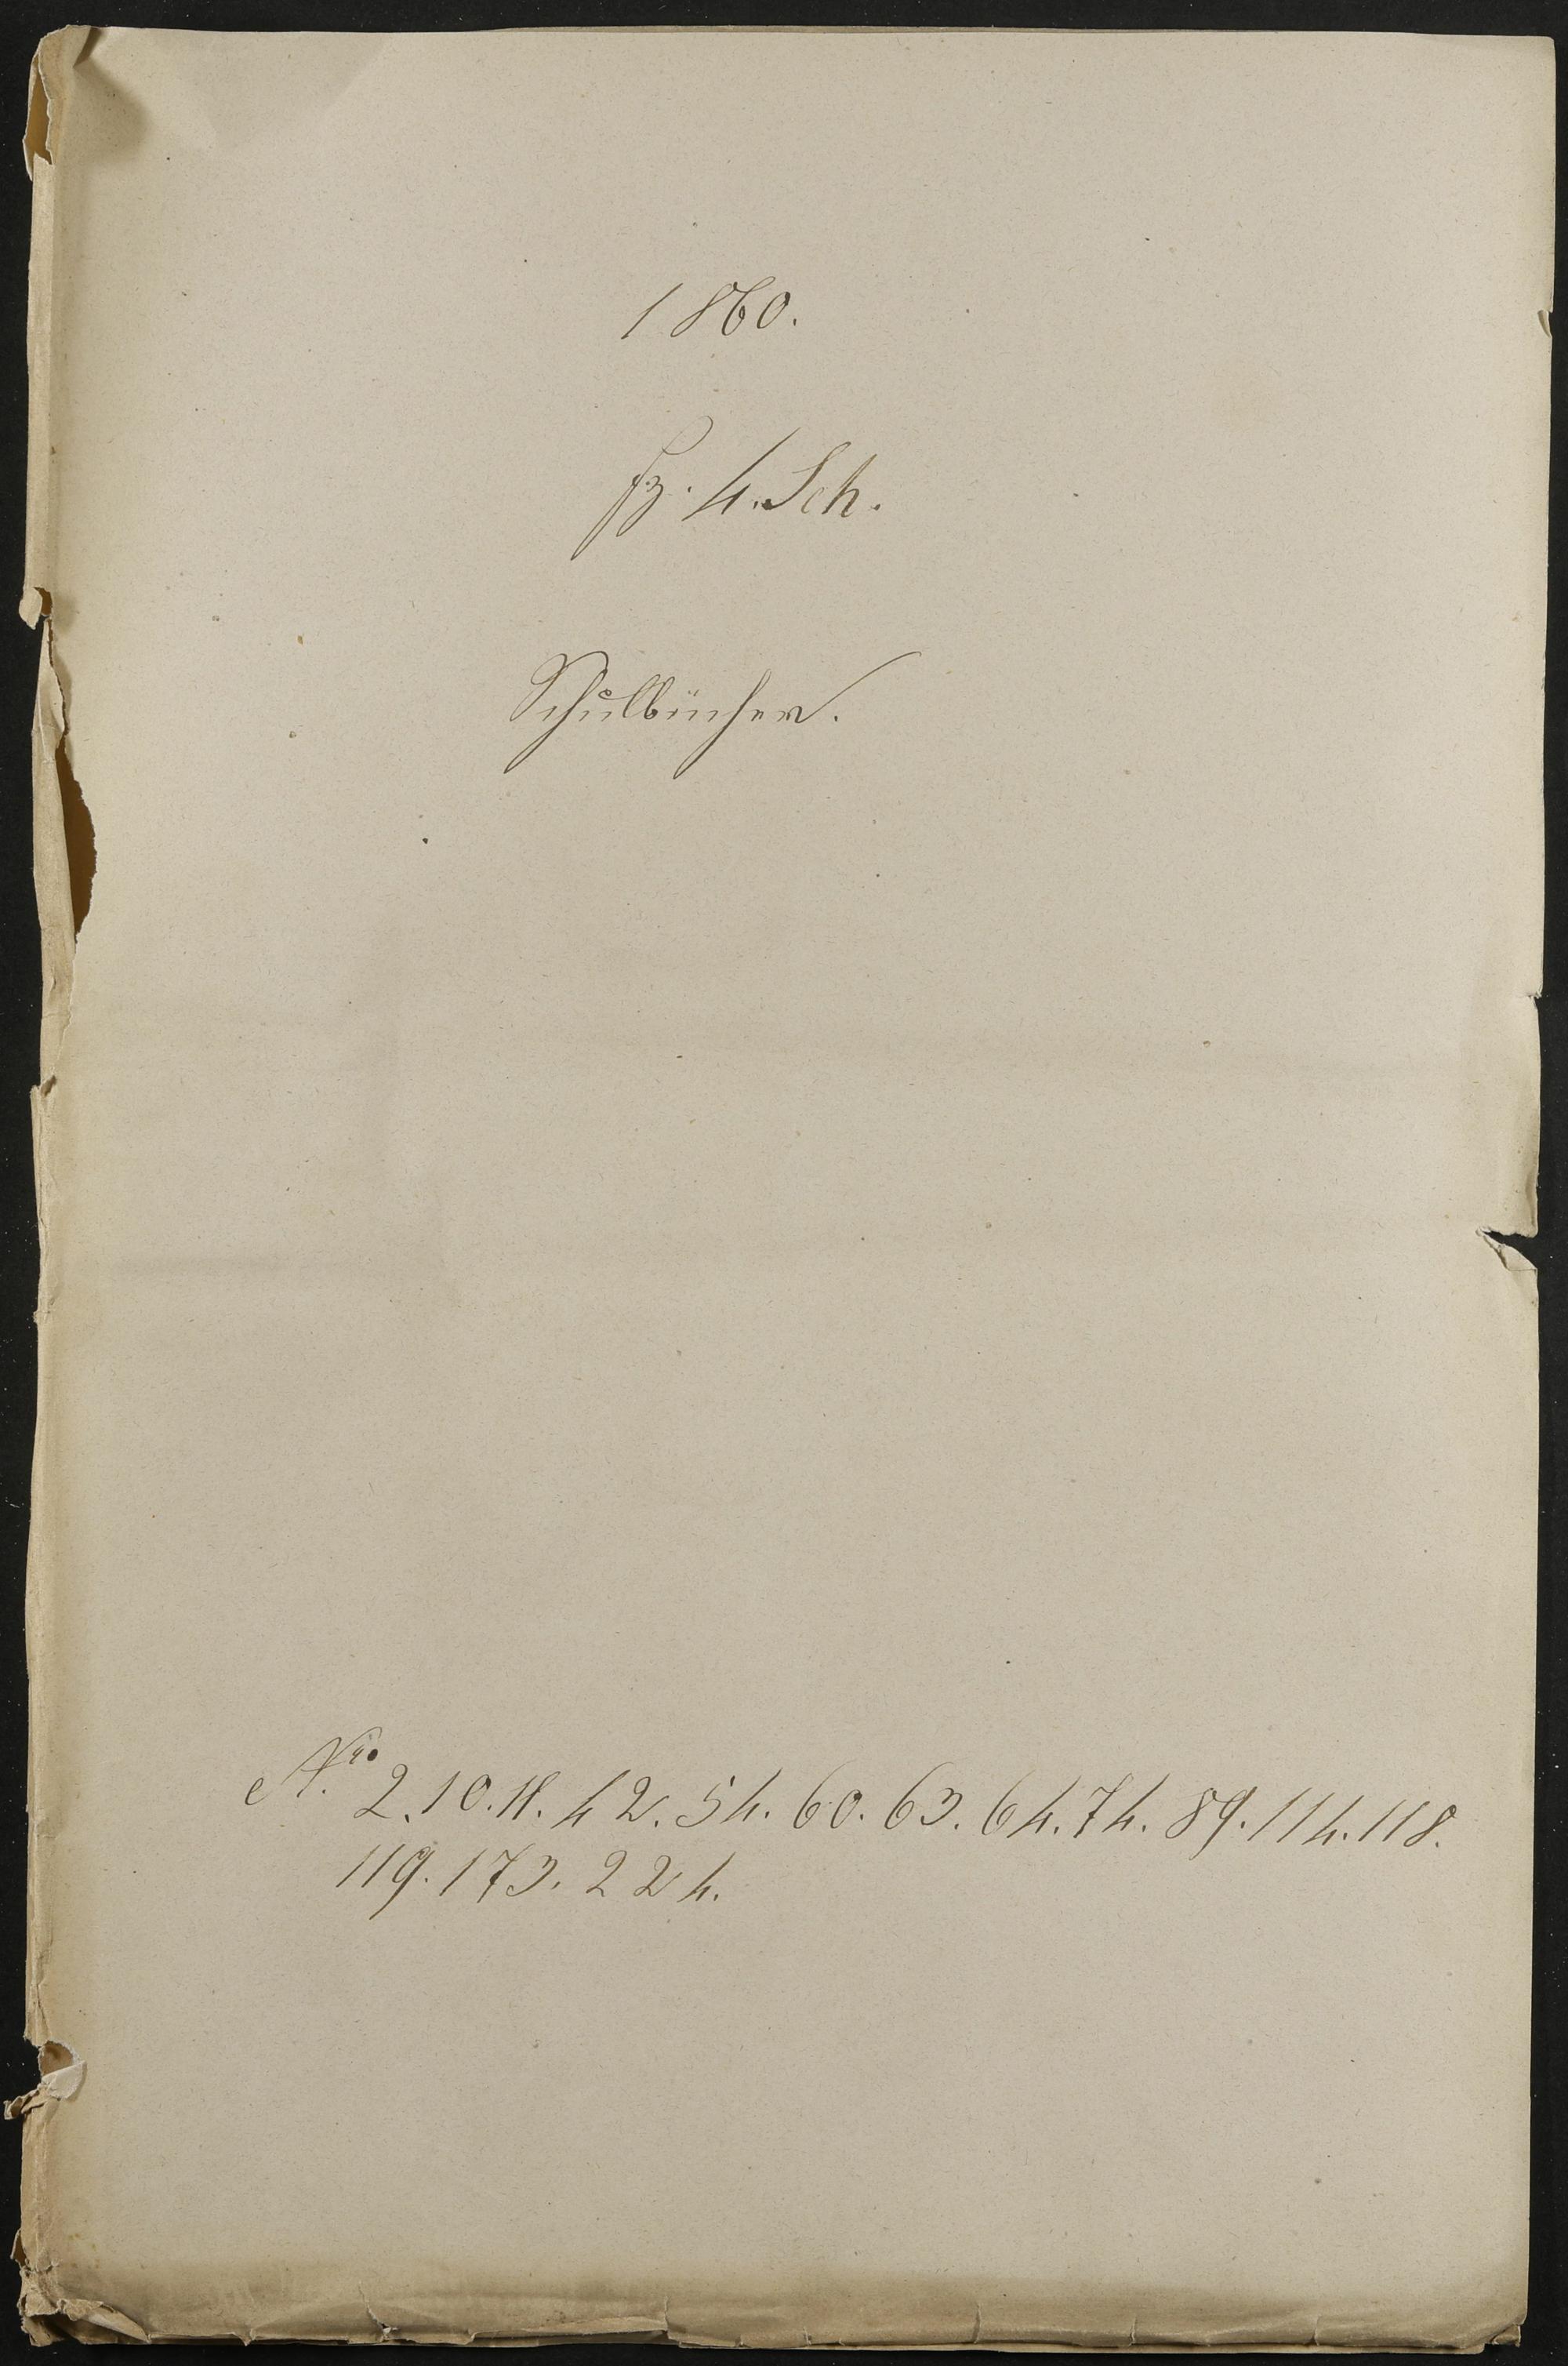 1860.
fz. 4. Sch.
Schulbücher.
Nro. 2. 10. 11. 42. 54. 60. 63. 64. 74. 89. 114. 118.
119. 173. 224.